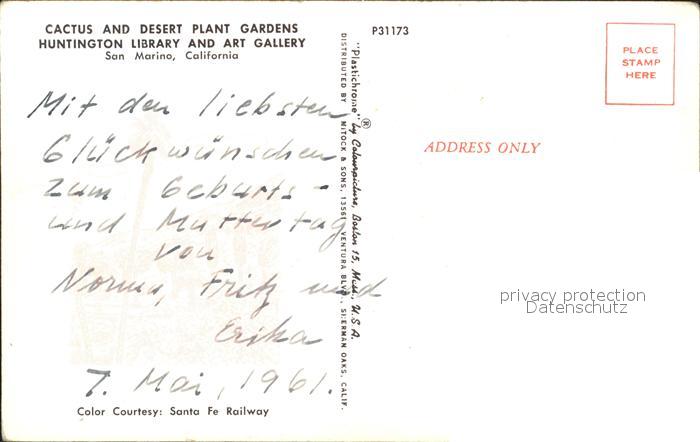 CACTUS AND DESERT PLANT GARDENS
HUNTINGTON LIBRARY AND ART GALLERY
San Marino, California
Mit den liebsten
Glückwünschen
zum Geburts-
und Muttertag
von
Norma, Fritz und
Erika
7. Mai, 1961.
Color Courtesy: Santa Fe Railway
P31173
"Plastichrome" ® by Colourpicture, Boston 15, Mass., U.S.A.
DISTRIBUTED BY MITOCK & SONS, 13561 VENTURA BLVD., SHERMAN OAKS, CALIF.
PLACE
STAMP
HERE
ADDRESS ONLY
privacy protection
Datenschutz